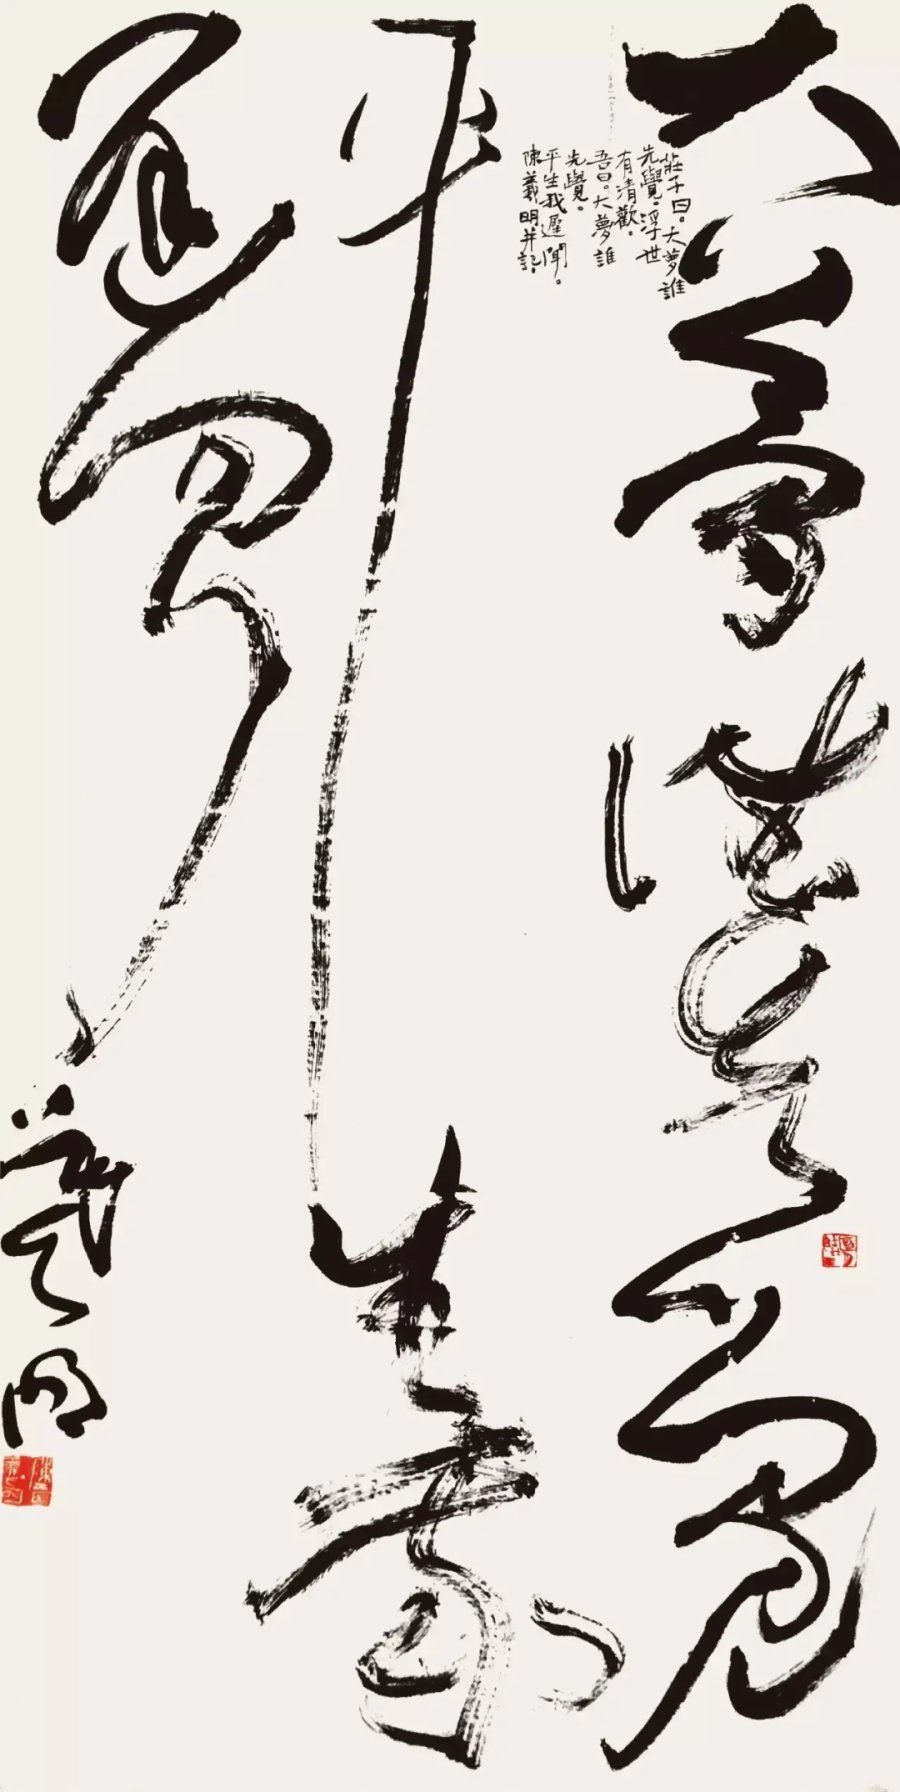 大夢誰先覺
平生我
遲聞
羲明
莊子曰。大夢誰
先覺。浮世
有清歡。
吾曰。大夢誰
先覺。
平生我遲聞。
陳羲明并記。